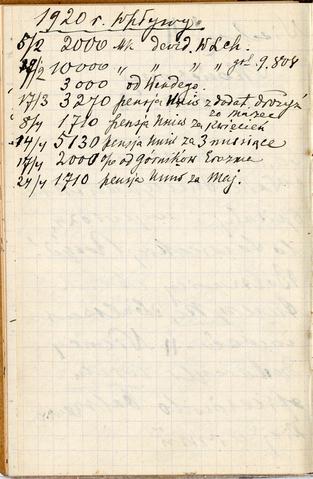 1920 r. Wpływy:
5/2 2000 Mk. dewid. W.Lch.
/2 10000 " " " " grl. 9.808
" 3000 od
17/3 3270 pensja Uniw z dodat. drożyź
za marzec
8/4 1710 pensja Uniw za kwiecień
14/4 5130 pensja Uniw za 3 miesiące
17/4 2000 % od górników Erazma
24/4 1710 pensja Uniw za Maj.